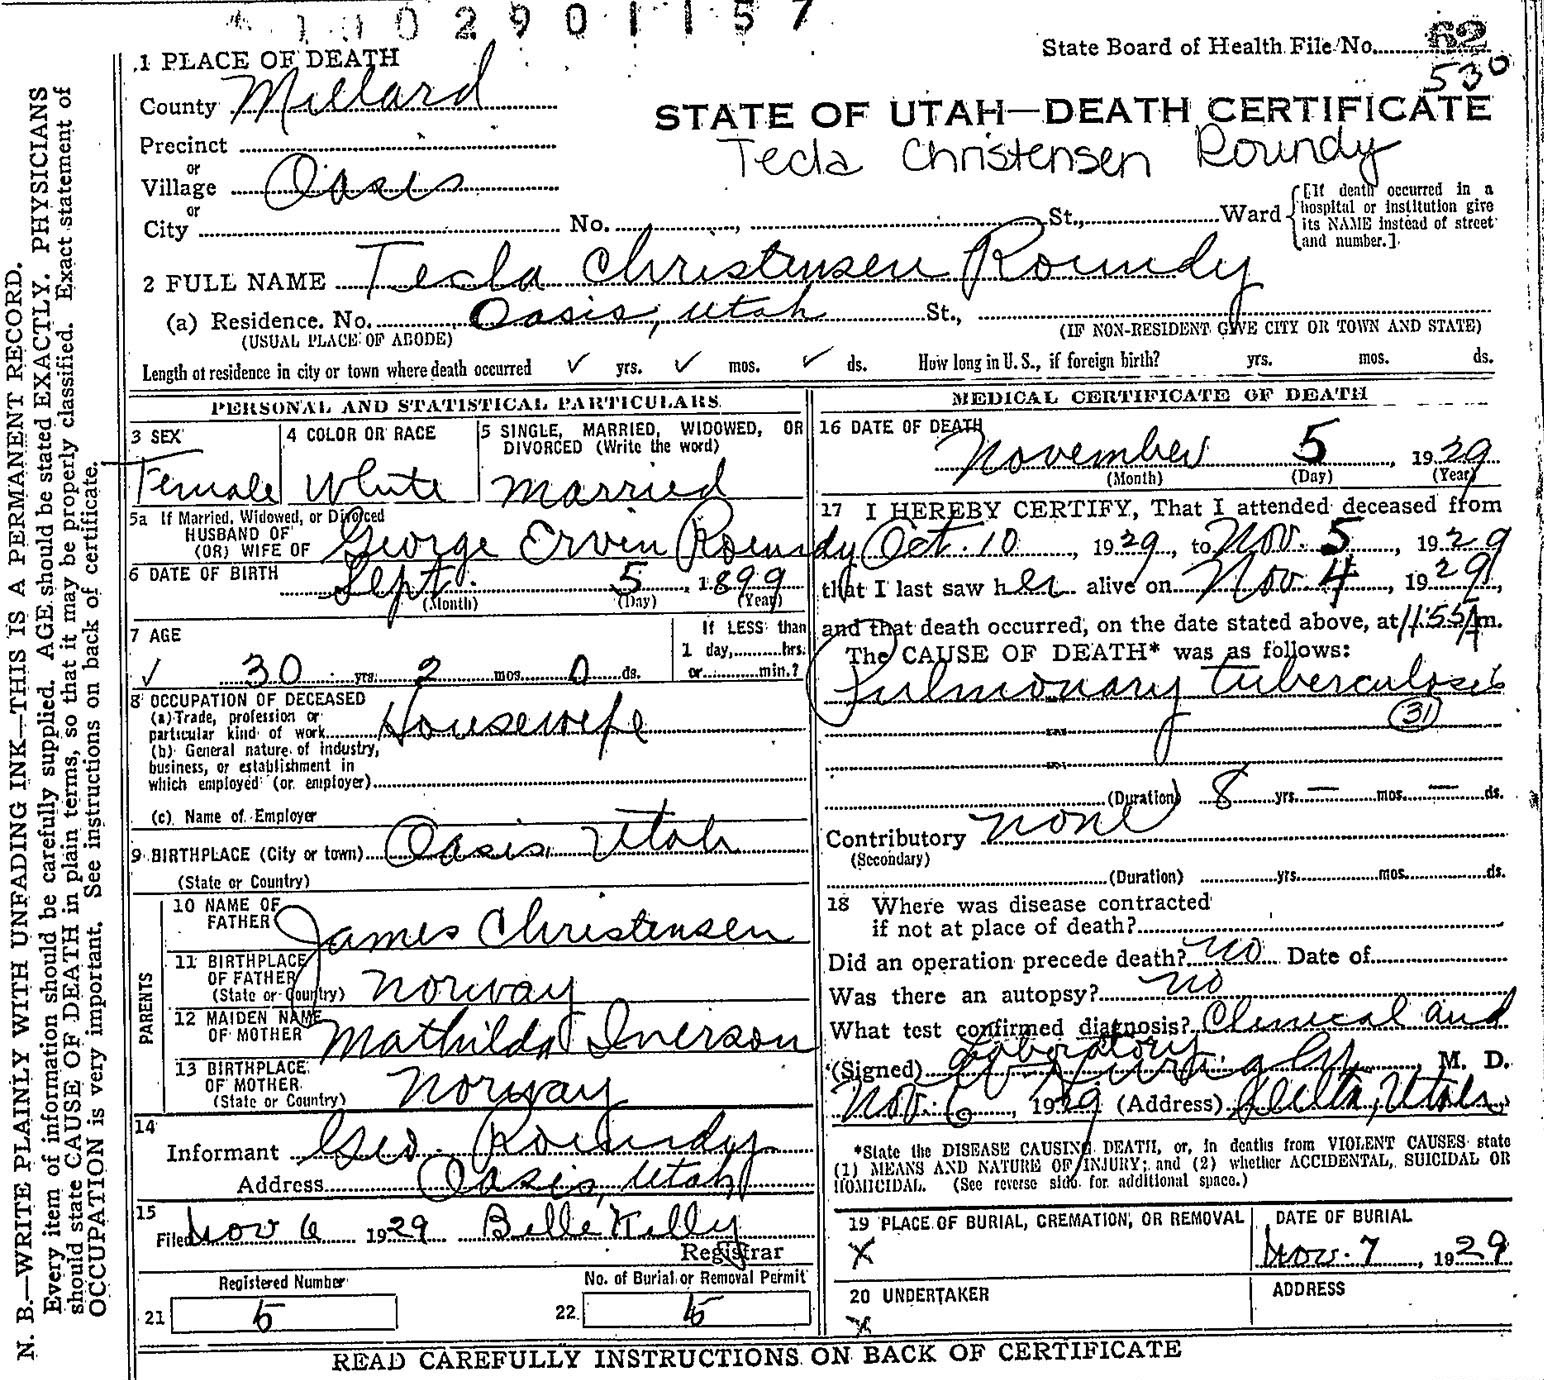 1 1 0 2 9 0 1 1 5 7
State Board of Health File No. 62
530
1 PLACE OF DEATH
County Millard
STATE OF UTAH—DEATH CERTIFICATE
Tecla Christensen Roundy
Precinct
or
Village Oasis
or
City No. St., Ward
[If death occurred in a
hospital or institution give
its NAME instead of street
and number.]
2 FULL NAME Tecla Christensen Roundy
(a) Residence. No. Oasis, Utah St.,
(USUAL PLACE OF ABODE) (IF NON-RESIDENT GIVE CITY OR TOWN AND STATE)
Length of residence in city or town where death occurred ✓ yrs. ✓ mos. ✓ ds. How long in U. S., if foreign birth? yrs. mos. ds.
PERSONAL AND STATISTICAL PARTICULARS
3 SEX
Female
4 COLOR OR RACE
White
5 SINGLE, MARRIED, WIDOWED, OR
DIVORCED (Write the word)
Married
5a If Married, Widowed, or Divorced
HUSBAND OF
(OR) WIFE OF George Ervin Roundy
6 DATE OF BIRTH Sept. 5, 1899
(Month) (Day) (Year)
7 AGE
✓ 30 yrs. 2 mos. 0 ds.
If LESS than
1 day, hrs.
or min.?
8 OCCUPATION OF DECEASED
(a) Trade, profession or
particular kind of work Housewife
(b) General nature of industry,
business, or establishment in
which employed (or employer)
(c) Name of Employer
9 BIRTHPLACE (City or town) Oasis, Utah
(State or Country)
PARENTS
10 NAME OF
FATHER James Christensen
11 BIRTHPLACE
OF FATHER
(State or Country) Norway
12 MAIDEN NAME
OF MOTHER Mathilda Iverson
13 BIRTHPLACE
OF MOTHER
(State or Country) Norway
14
Informant Geo. Roundy
Address Oasis, Utah
15
Filed Nov 6 1929 Belle Kelly
Registrar
Registered Number
21 5
No. of Burial or Removal Permit
22 5
MEDICAL CERTIFICATE OF DEATH
16 DATE OF DEATH
November 5, 1929
(Month) (Day) (Year)
17 I HEREBY CERTIFY, That I attended deceased from
Oct. 10, 1929, to Nov. 5, 1929
that I last saw her alive on Nov 4, 1929,
and that death occurred, on the date stated above, at 11:55 A m.
The CAUSE OF DEATH* was as follows:
Pulmonary tuberculosis
31
(Duration) 8 yrs. — mos. — ds.
Contributory none
(Secondary)
(Duration) yrs. mos. ds.
18 Where was disease contracted
if not at place of death?
Did an operation precede death? no Date of
Was there an autopsy? no
What test confirmed diagnosis? Clinical and
Laboratory
(Signed) M. D.
Nov. 6, 1929 (Address) Delta, Utah
*State the DISEASE CAUSING DEATH, or, in deaths from VIOLENT CAUSES state
(1) MEANS AND NATURE OF INJURY; and (2) whether ACCIDENTAL, SUICIDAL OR
HOMICIDAL. (See reverse side for additional space.)
19 PLACE OF BURIAL, CREMATION, OR REMOVAL
X
DATE OF BURIAL
Nov. 7, 1929
20 UNDERTAKER
X
ADDRESS
READ CAREFULLY INSTRUCTIONS ON BACK OF CERTIFICATE
N. B.—WRITE PLAINLY WITH UNFADING INK—THIS IS A PERMANENT RECORD.
Every item of information should be carefully supplied. AGE should be stated EXACTLY. PHYSICIANS
should state CAUSE OF DEATH in plain terms, so that it may be properly classified. Exact statement of
OCCUPATION is very important. See instructions on back of certificate.